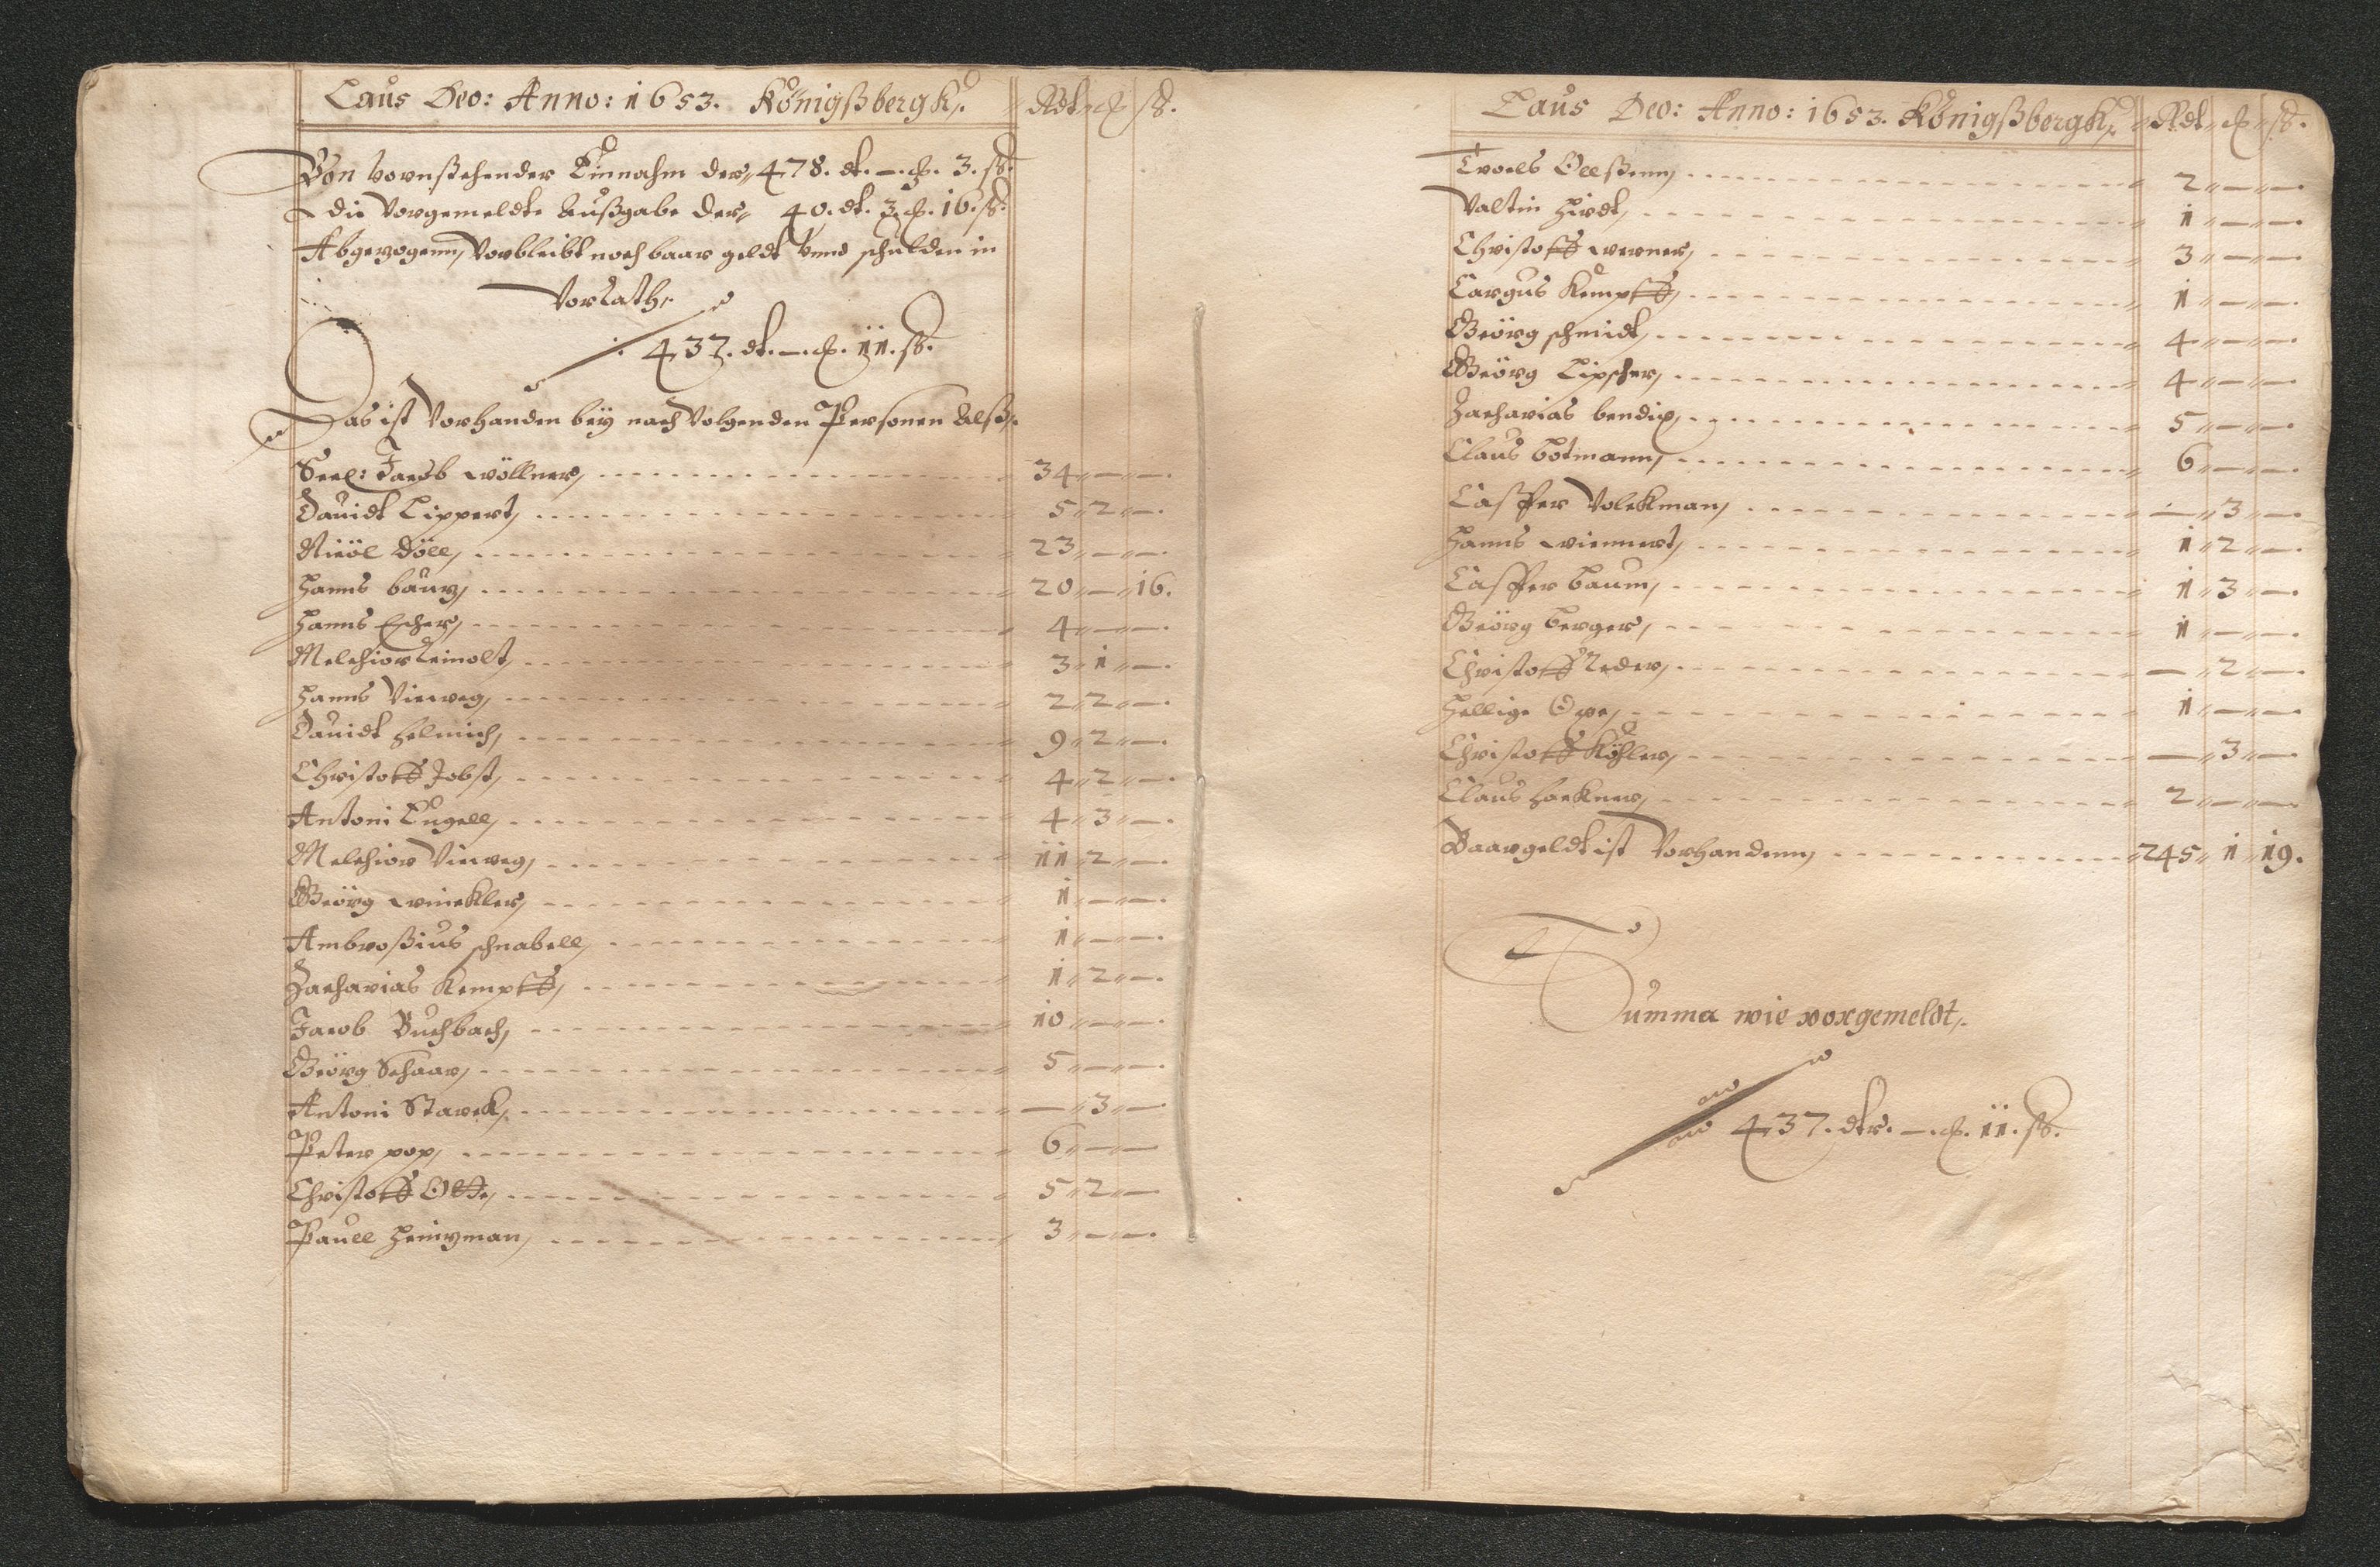 Laus Deo: Anno: 1653. Königßbergk. Rdt ß.
Von vornstehender Einnahm der 478. dt. —. 3. ß.
die Vorgemeldte Außgabe der 40. dt. 3. 16. ß.
Abgezogenn, Vorbleibt noch baar geldt vnnd schulden in
Vorrath.
437. dt. —. 11. ß.
Das ist Vorhanden beÿ nach Volgenden Personen Alß.
Seel: Jacob wöllner, 34 — —.
Dauidt Lippert, 5 2 —.
Nicöl Döll, 23 — —.
Hanns baur, 20 — 16.
Hanns Escher, 4 — —.
Melchior Reinolt, 3 1 —.
Hanns Vieweg, 2 2 —.
Dauidt helmich, 9 2 —.
Christoff Jobst, 4 2 —.
Antoni Engell, 4 3 —.
Melchior Vieweg, 11 2 —.
Geörg winckler, 1 — —.
Ambroßius schnabell, 1 — —.
Zacharias Kempff, 1 2 —.
Jacob Buchbach, 10 — —.
Geörg Schaar, 5 — —.
Antoni Starck, — 3 —.
Peter pop, 6 — —
Christoff Otte, 5 2 —
Pauell Heinzman, 3 — —.
Laus Deo: Anno: 1653. Königßbergk. Rdt ß.
Troels Oelßenn, 2 — —.
Valtin Hirdt, 1 — —.
Christoff werner, 3 — —.
Cargus Kempff, 1 — —.
Geörg schmidt, 4 — —.
Geörg Lipscher, 4 — —.
Zacharias bendix, 5 — —.
Claus botmann, 6 — —.
Casper Volckman, — 3 —.
Hanns wiennert, 1 2 —.
Casper baum, 1 3 —.
Geörg berger, 1 — —.
Christoff Reder, — 2 —.
Hellige Owe, 1 — —.
Christoff Köhler, — 3 —
Claus hackner, 2 — —.
Baargeldt ist Vorhandenn, 245 1 19.
Summa wie vorgemeldt.
437. dtr. —. 11. ß.